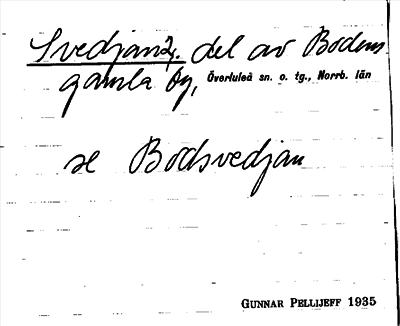 Svedjan 2, del av Bodens
gamla by, Överluleå sn. o. tg., Norrb. län
se Bodsvedjan
GUNNAR PELLIJEFF 1935